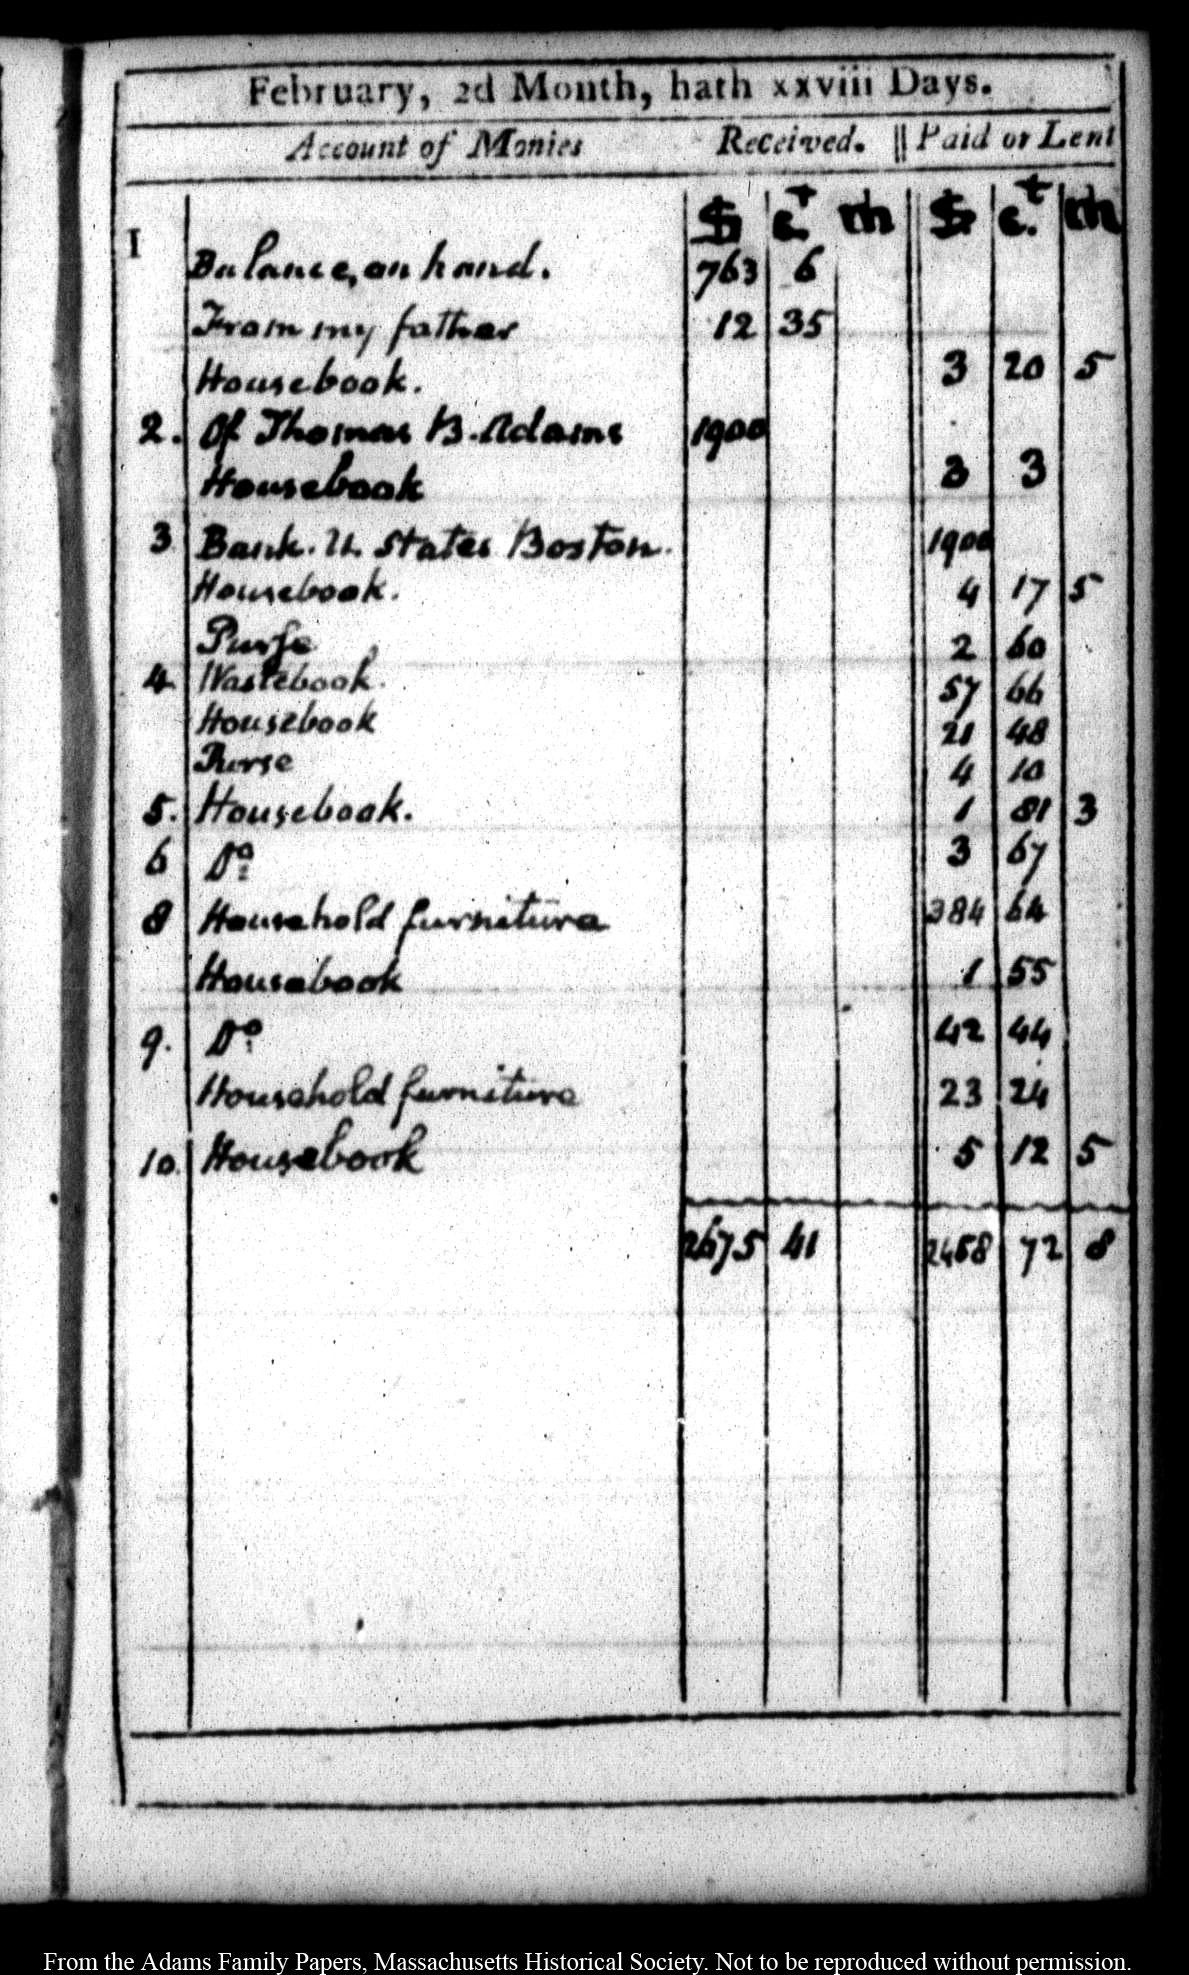 February, 2d Month, hath xxviii Days.
Account of Monies Received. || Paid or Lent
$ c.t m $ c.t m
1 Balance, on hand. 763 6
From my father 12 35
Housebook. 3 20 5
2. Of Thomas B. Adams 1900
Housebook 3 3
3 Bank. U. States Boston. 1900
Housebook. 4 17 5
Purse 2 60
4 Wastebook. 57 66
Housebook 21 48
Purse 4 10
5. Housebook. 1 81 3
6 Do 3 67
8 Household furniture 384 64
Housebook 1 55
9. Do 42 44
Household furniture 23 24
10. Housebook 5 12 5
2675 41 2458 72 8
From the Adams Family Papers, Massachusetts Historical Society. Not to be reproduced without permission.